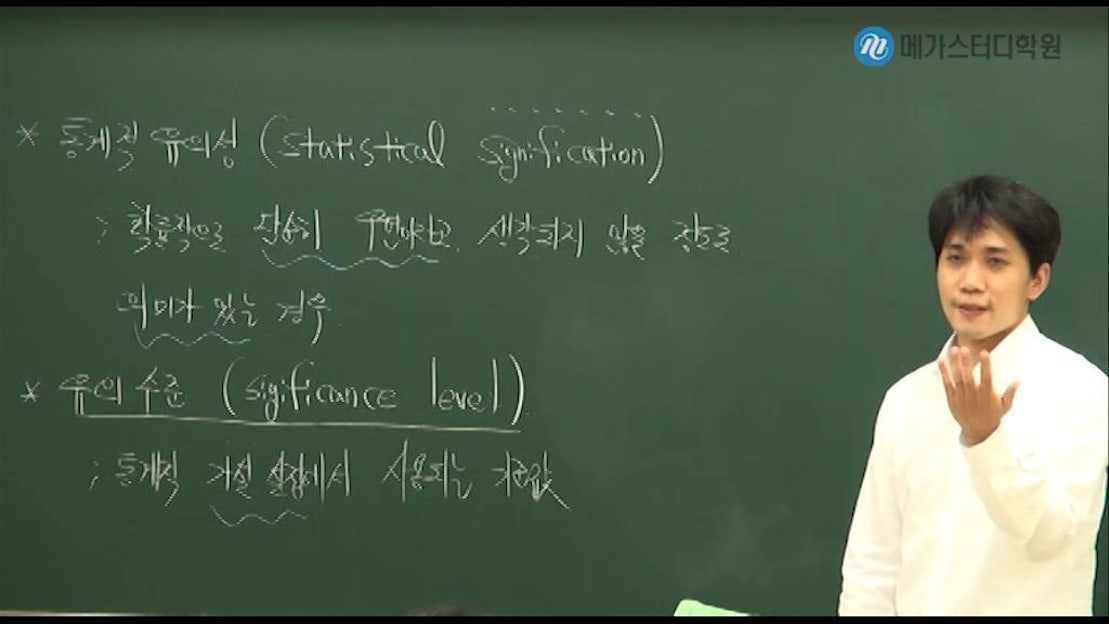 메가스터디학원
* 통계적 유의성 (statistical signification)
; 확률적으로 단순히 우연이라고 생각되지 않을 정도로
의미가 있는 경우
* 유의 수준 (sigificance level)
; 통계적 가설 설정에서 사용되는 기준값